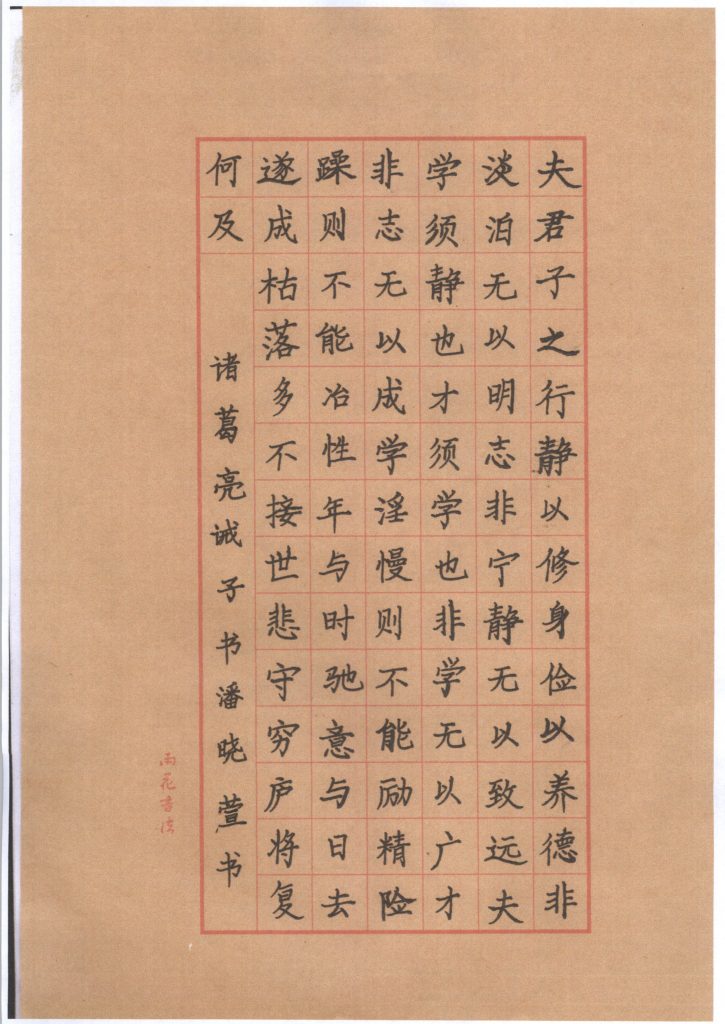 夫君子之行静以修身俭以养德非
淡泊无以明志非宁静无以致远夫
学须静也才须学也非学无以广才
非志无以成学淫慢则不能励精险
躁则不能冶性年与时驰意与日去
遂成枯落多不接世悲守穷庐将复
何及
诸葛亮诫子书潘晓萱书
雨花书法